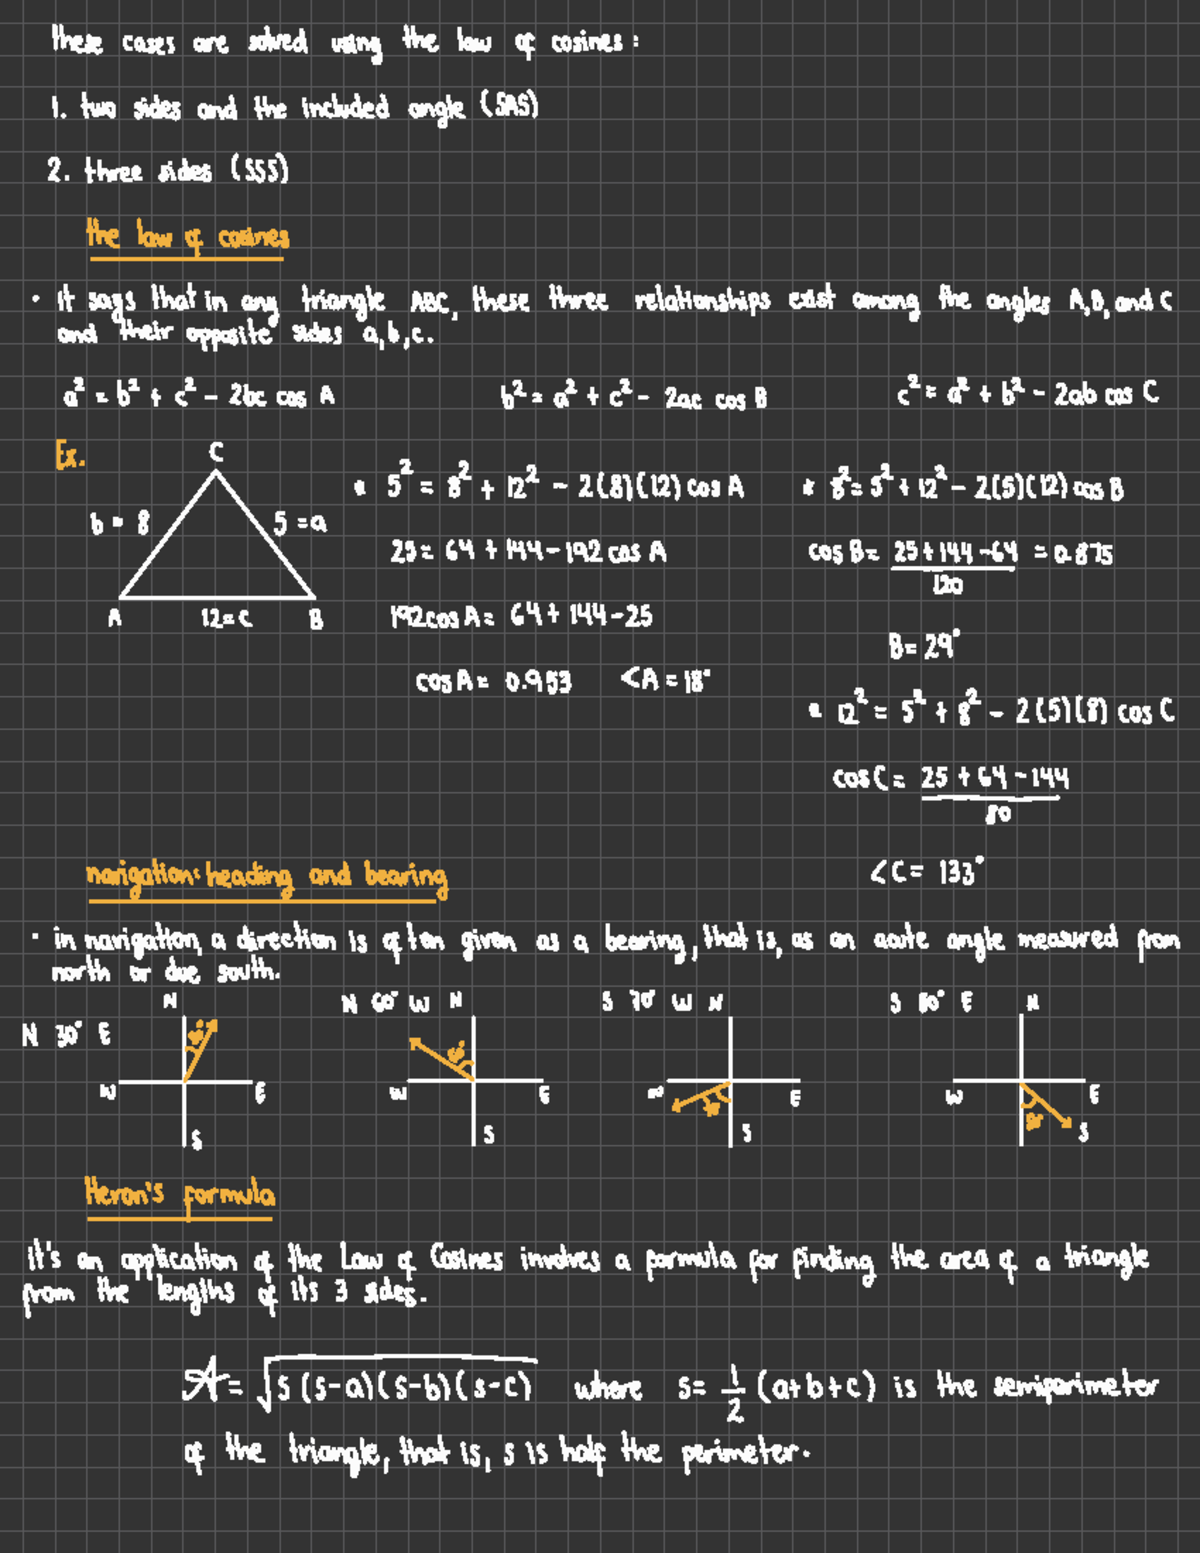 these cases are solved using the law of cosines:
1. two sides and the included angle (SAS)
2. three sides (SSS)
the law of cosines
• it says that in any triangle ABC, these three relationships exist among the angles A,B, and C
and their opposite sides a,b,c.
a² = b² + c² - 2bc cos A
b² = a² + c² - 2ac cos B
c² = a² + b² - 2ab cos C
Ex.
C
b = 8
5 = a
A
12 = c
B
• 5² = 8² + 12² - 2(8)(12) cos A
25 = 64 + 144 - 192 cos A
192 cos A = 64 + 144 - 25
cos A = 0.953 <A = 18°
• 8² = 5² + 12² - 2(5)(12) cos B
cos B = 25 + 144 - 64 = 0.875
120
B = 29°
• 12² = 5² + 8² - 2(5)(8) cos C
cos C = 25 + 64 - 144
80
∠C = 133°
navigation: heading and bearing
• in navigation, a direction is often given as a bearing, that is, as an acute angle measured from
north or due south.
N 30° E
N
30°
W
E
S
N 60° W
N
60°
W
E
S
S 70° W
N
W
70°
E
S
S 80° E
N
W
E
80°
S
Heron's formula
it's an application of the Law of Cosines involves a formula for finding the area of a triangle
from the lengths of its 3 sides.
A = √s(s-a)(s-b)(s-c) where s = 1/2 (a+b+c) is the semiperimeter
of the triangle, that is, s is half the perimeter.